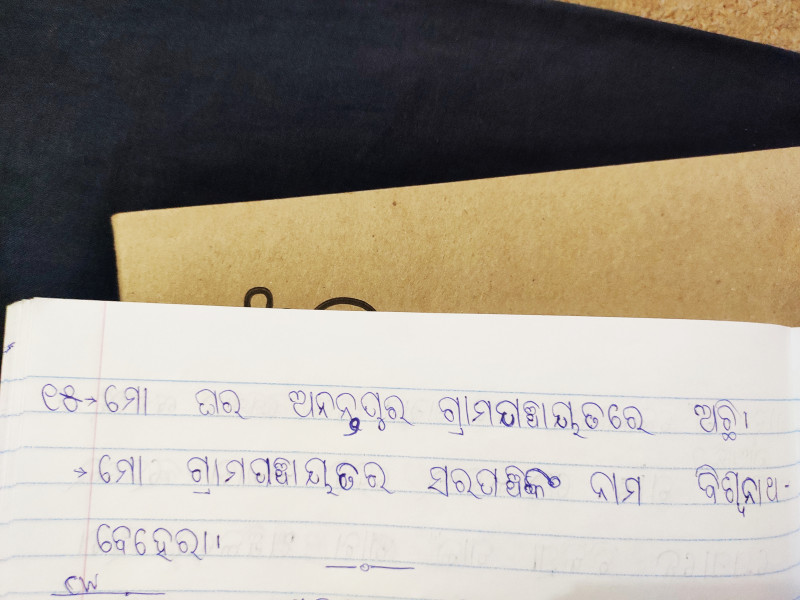 ୧୫→ ମୋ ଘର ଅନନ୍ତପୁର ଗ୍ରାମପଞ୍ଚାୟତରେ ଅଛି।
→ ମୋ ଗ୍ରାମପଞ୍ଚାୟତର ସରପଞ୍ଚଙ୍କ ନାମ ବିଶ୍ୱନାଥ-
ବେହେରା।
CW